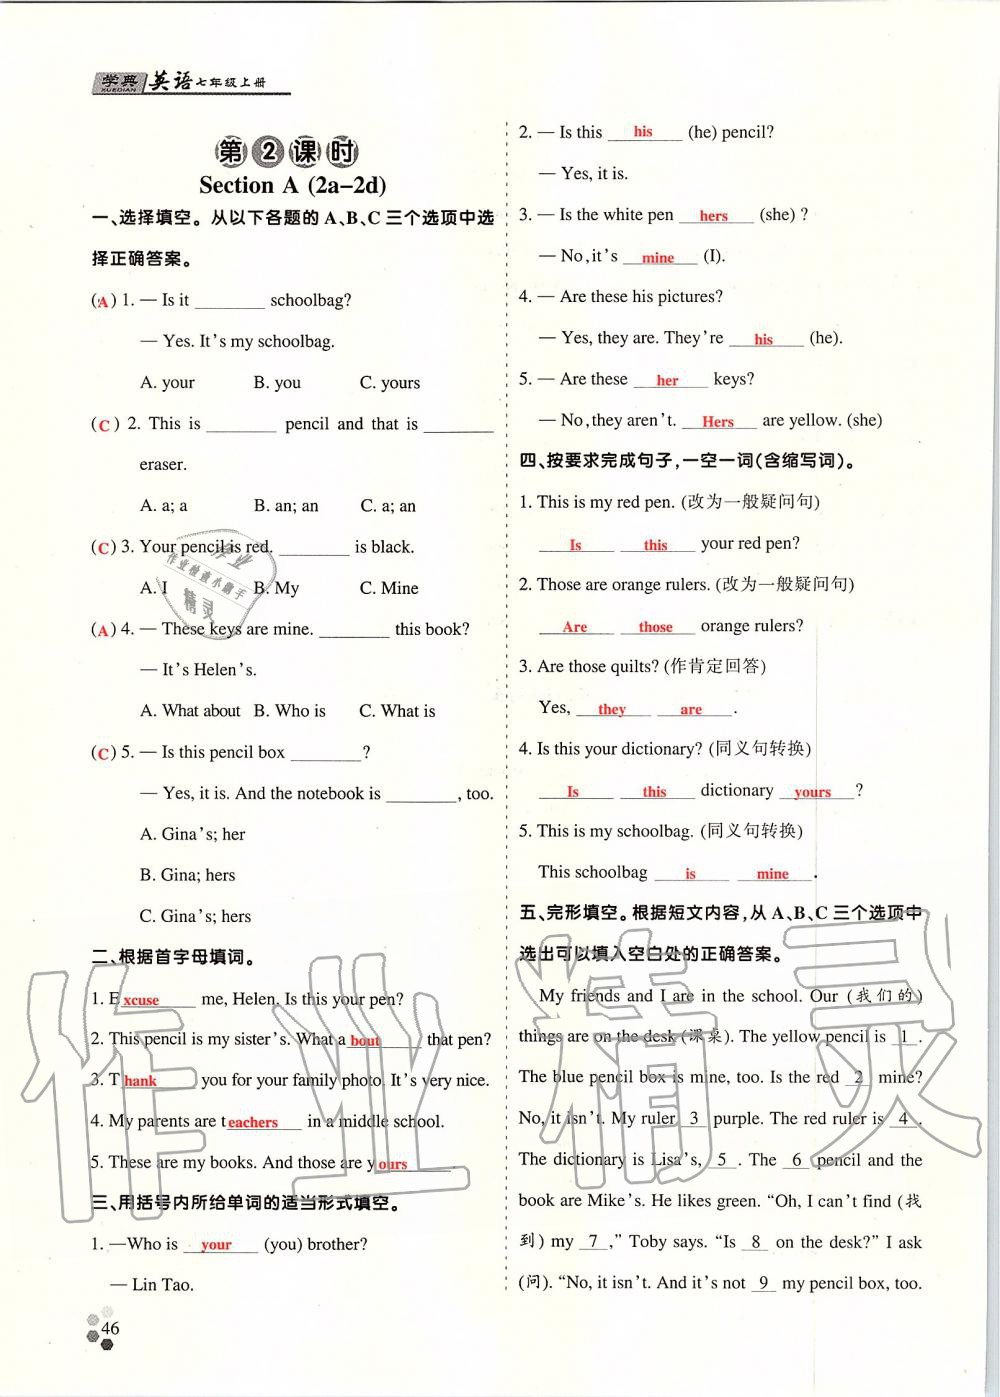 学典 XUEDIAN 英语 七年级上册
第2课时
Section A (2a-2d)
一、选择填空。从以下各题的 A、B、C 三个选项中选
择正确答案。
(A) 1. — Is it ________ schoolbag?
— Yes. It's my schoolbag.
A. your B. you C. yours
(C) 2. This is ________ pencil and that is ________
eraser.
A. a; a B. an; an C. a; an
(C) 3. Your pencil is red. ________ is black.
A. I B. My C. Mine
(A) 4. — These keys are mine. ________ this book?
— It's Helen's.
A. What about B. Who is C. What is
(C) 5. — Is this pencil box ________?
— Yes, it is. And the notebook is ________, too.
A. Gina's; her
B. Gina; hers
C. Gina's; hers
二、根据首字母填词。
1. Excuse me, Helen. Is this your pen?
2. This pencil is my sister's. What about that pen?
3. Thank you for your family photo. It's very nice.
4. My parents are teachers in a middle school.
5. These are my books. And those are yours.
三、用括号内所给单词的适当形式填空。
1. —Who is your (you) brother?
— Lin Tao.
46
2. — Is this his (he) pencil?
— Yes, it is.
3. — Is the white pen hers (she) ?
— No, it's mine (I).
4. — Are these his pictures?
— Yes, they are. They're his (he).
5. — Are these her keys?
— No, they aren't. Hers are yellow. (she)
四、按要求完成句子，一空一词(含缩写词)。
1. This is my red pen. (改为一般疑问句)
Is this your red pen?
2. Those are orange rulers. (改为一般疑问句)
Are those orange rulers?
3. Are those quilts? (作肯定回答)
Yes, they are.
4. Is this your dictionary? (同义句转换)
Is this dictionary yours?
5. This is my schoolbag. (同义句转换)
This schoolbag is mine.
五、完形填空。根据短文内容，从 A、B、C 三个选项中
选出可以填入空白处的正确答案。
My friends and I are in the school. Our (我们的)
things are on the desk (课桌). The yellow pencil is 1.
The blue pencil box is mine, too. Is the red 2 mine?
No, it isn't. My ruler 3 purple. The red ruler is 4.
The dictionary is Lisa's, 5. The 6 pencil and the
book are Mike's. He likes green. "Oh, I can't find (找
到) my 7," Toby says. "Is 8 on the desk?" I ask
(问). "No, it isn't. And it's not 9 my pencil box, too.
作业精灵
作业
作业检查小助手
精灵